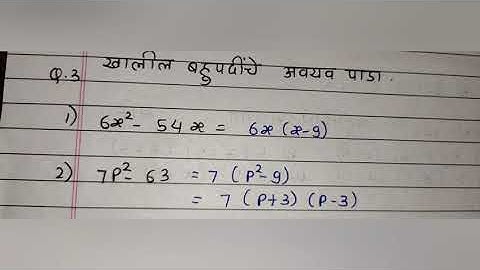 Q.3 खालील बहुपदींचे अवयव पाडा.
1) 6x² - 54x = 6x (x-9)
2) 7P² - 63 = 7 (P²-9)
= 7 (P+3) (P-3)